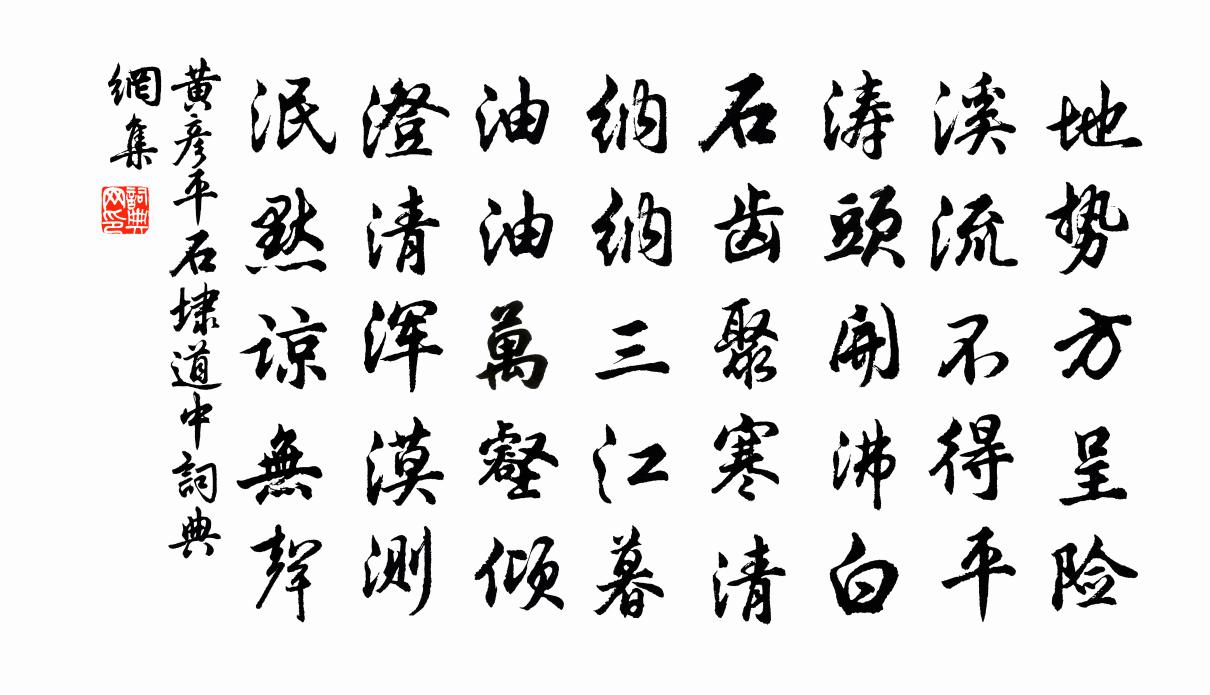 地势方呈险
溪流不得平
涛頭開沸白
石齿聚寒清
纳纳三江暮
油油萬壑倾
澄清浑漠测
泯默谅無聲
黄彦平石埭道中詞典
網集
詞典
网印